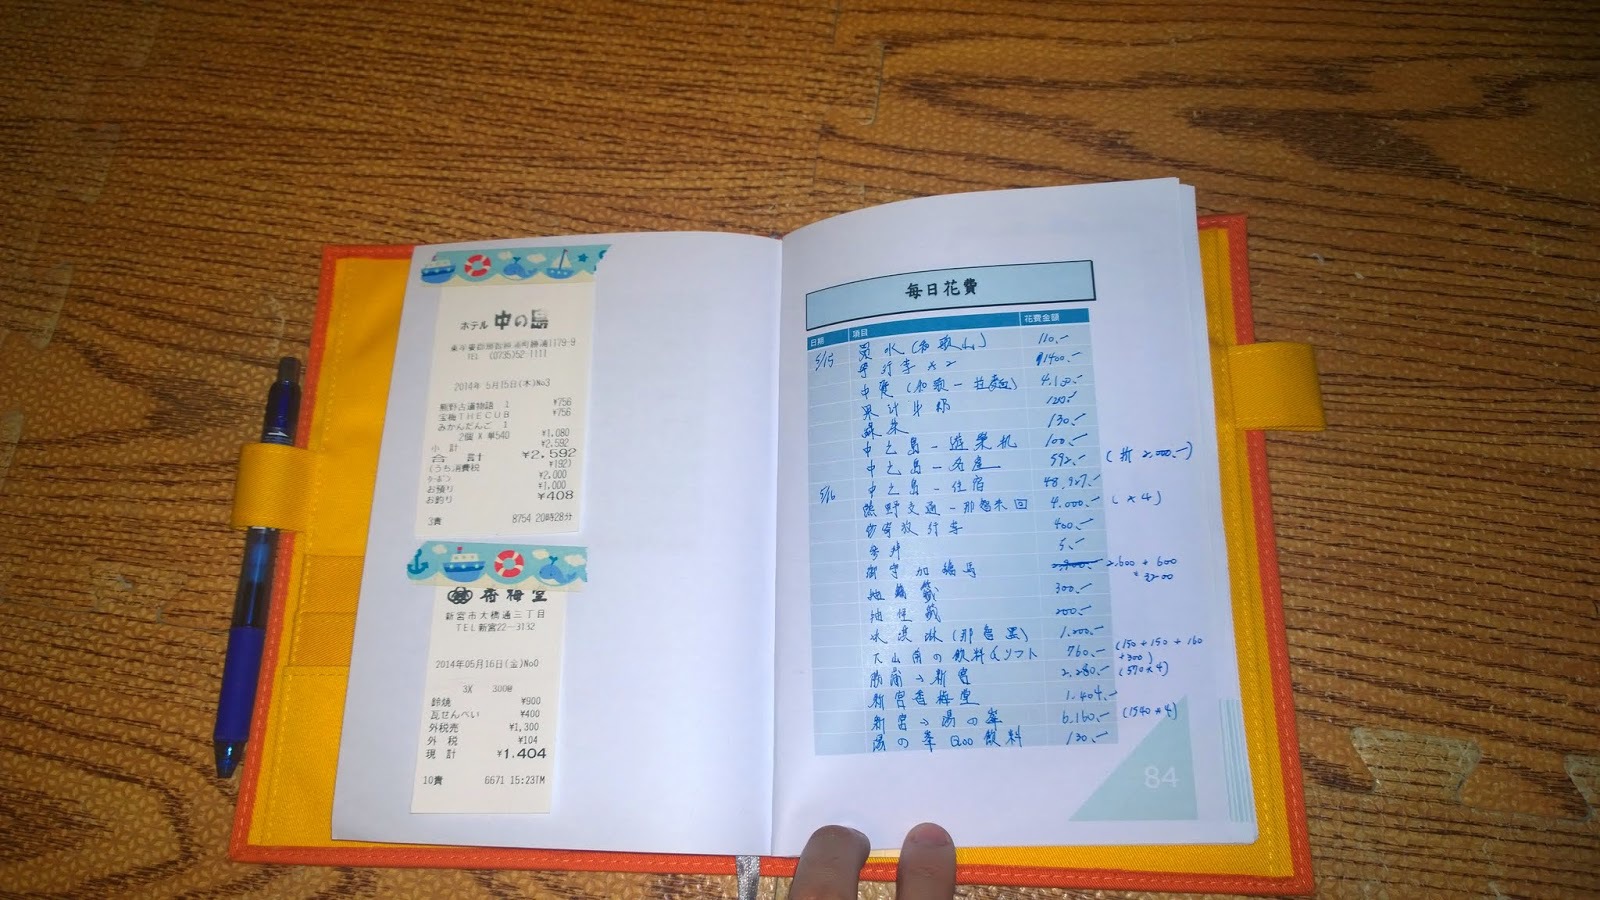 ホテル 中の島
TEL (0735)52-1111
2014年 5月15日(木)No3
熊野古道物語 1 ¥756
宝梅THECUB ¥756
みかんだんご 1
2個 X 単540 ¥1,080
小 計 ¥2,592
合 計 ¥2,592
(うち消費税 ¥192)
¥2,000
お預り ¥1,000
お釣り ¥408
3責 8754 20時28分
香梅堂
新宮市大橋通三丁目
TEL新宮22-3132
2014年05月16日(金)No0
3X
鈴焼 ¥900
瓦せんべい ¥400
外税売 ¥1,300
外 税 ¥104
現 計 ¥1,404
10責 6671 15:23TM
每日花費
日期 項目 花費金額
5/15 買水(和歌山) 110.-
寄行李×2 1400.-
中餐(和歌一拉麵) 4,100.-
果汁牛奶 120.-
130.-
中之島-遊樂机 100.-
中之島-名產 592.- (折2,000.-)
5/16 中之島-住宿 48,927.-
熊野交通-那智来回 4,000.- (×4)
寄放行李 400.-
参拜 5.-
御守加繪馬 2,600+600
=3200
抽籤 300.-
抽怪籤 200.-
冰淇淋(那智黑) 1,200.-
下山角の飲料&ソフト 760.- (150+150+160
+300)
勝浦→新宮 2,280.- (570×4)
新宮香梅堂 1,404.-
新宮→湯の峯 6,160.- (1540×4)
湯の峯 飲料 130.-
84